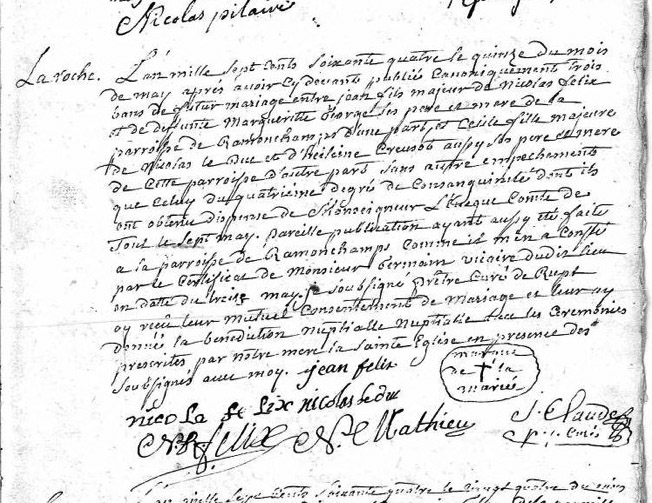 Nicolas pilaire
La roche. L'an mille sept cents soixante quatre le quinze du mois
de may apres avoir cy devant publié canoniquement trois
bans de futur mariage entre jean fils majeur de Nicolas felix
et de deffunte Margueritte George ses pere et mere de la
parroisse de Ramonchamps d'une part, et Cecile fille majeure
de Nicolas le Duc et d'heleine Creusot aussy ses pere et mere
de cette parroisse d'autre part sans autre empechements
que celuy du quatrieme degrés de Consanguinité dont ils
ont obtenu dispense de Monseigneur L'Eveque Comte de
Toul le sept may. pareille publication ayant aussy été faite
a la parroisse de Ramonchamps comme il m'en a conste
par le Certificat de Monsieur Germain vicaire dudit lieu
en date du treize may. je soubsigné prêtre Curé de Rupt
ay reçu leur mutuel Consentement de Mariage et leur ay
donné la benediction Nuptialle Nuptialle avec les Ceremonies
prescrites par notre mere la sainte Eglise en presence des
soubsignés avec moy. jean felix
marque
de + la
mariée
nicola fe lix nicolas leduc
N felix N. C Mathieu J. Claudel
mille sept cents soixante quatre le vingt quatre du mois